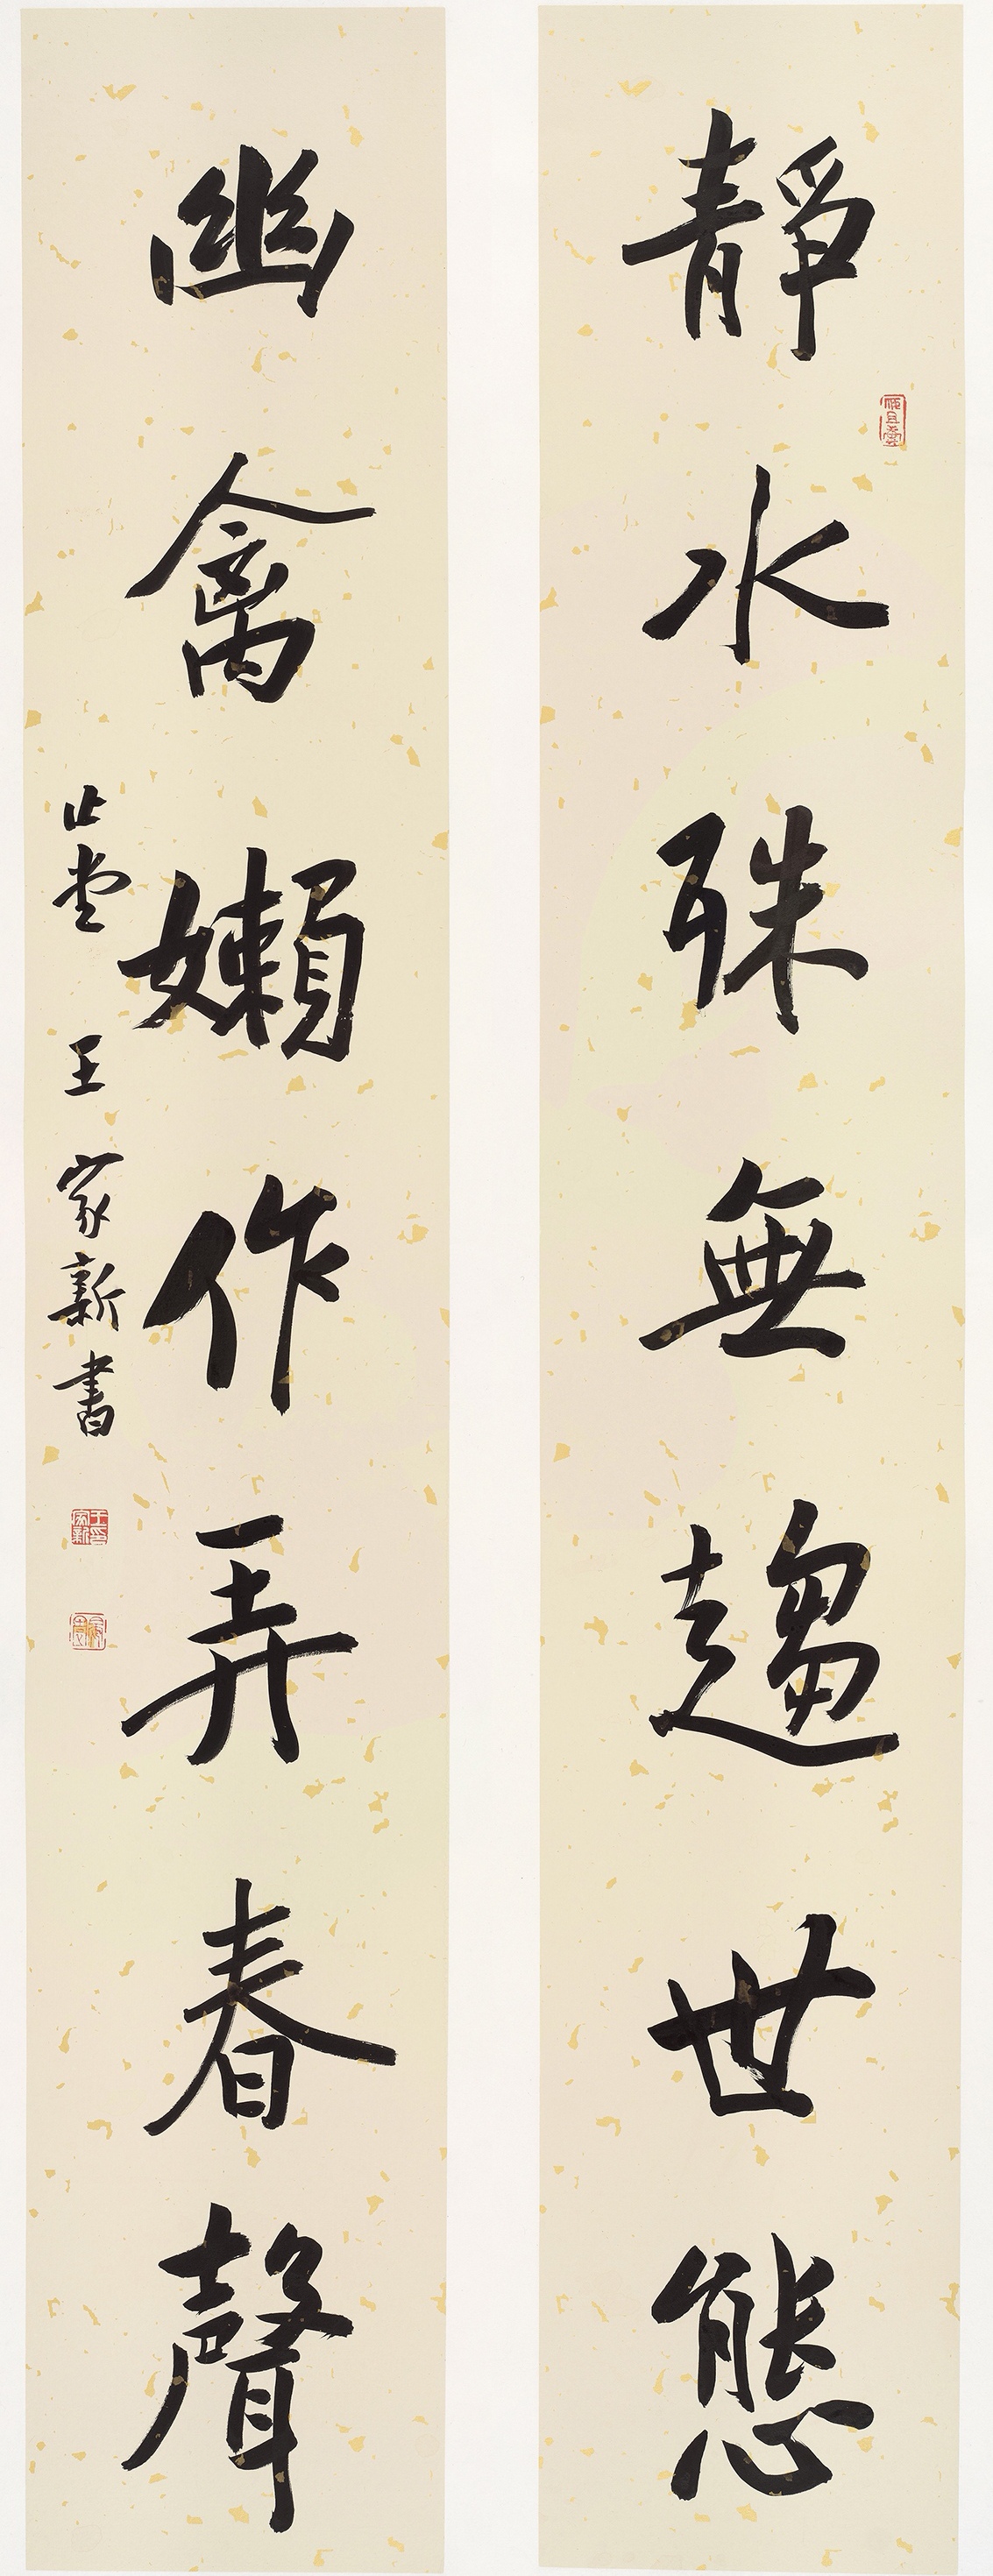 靜水殊無趨世態
幽禽嬾作弄春聲
止堂 王家新書
王家新印